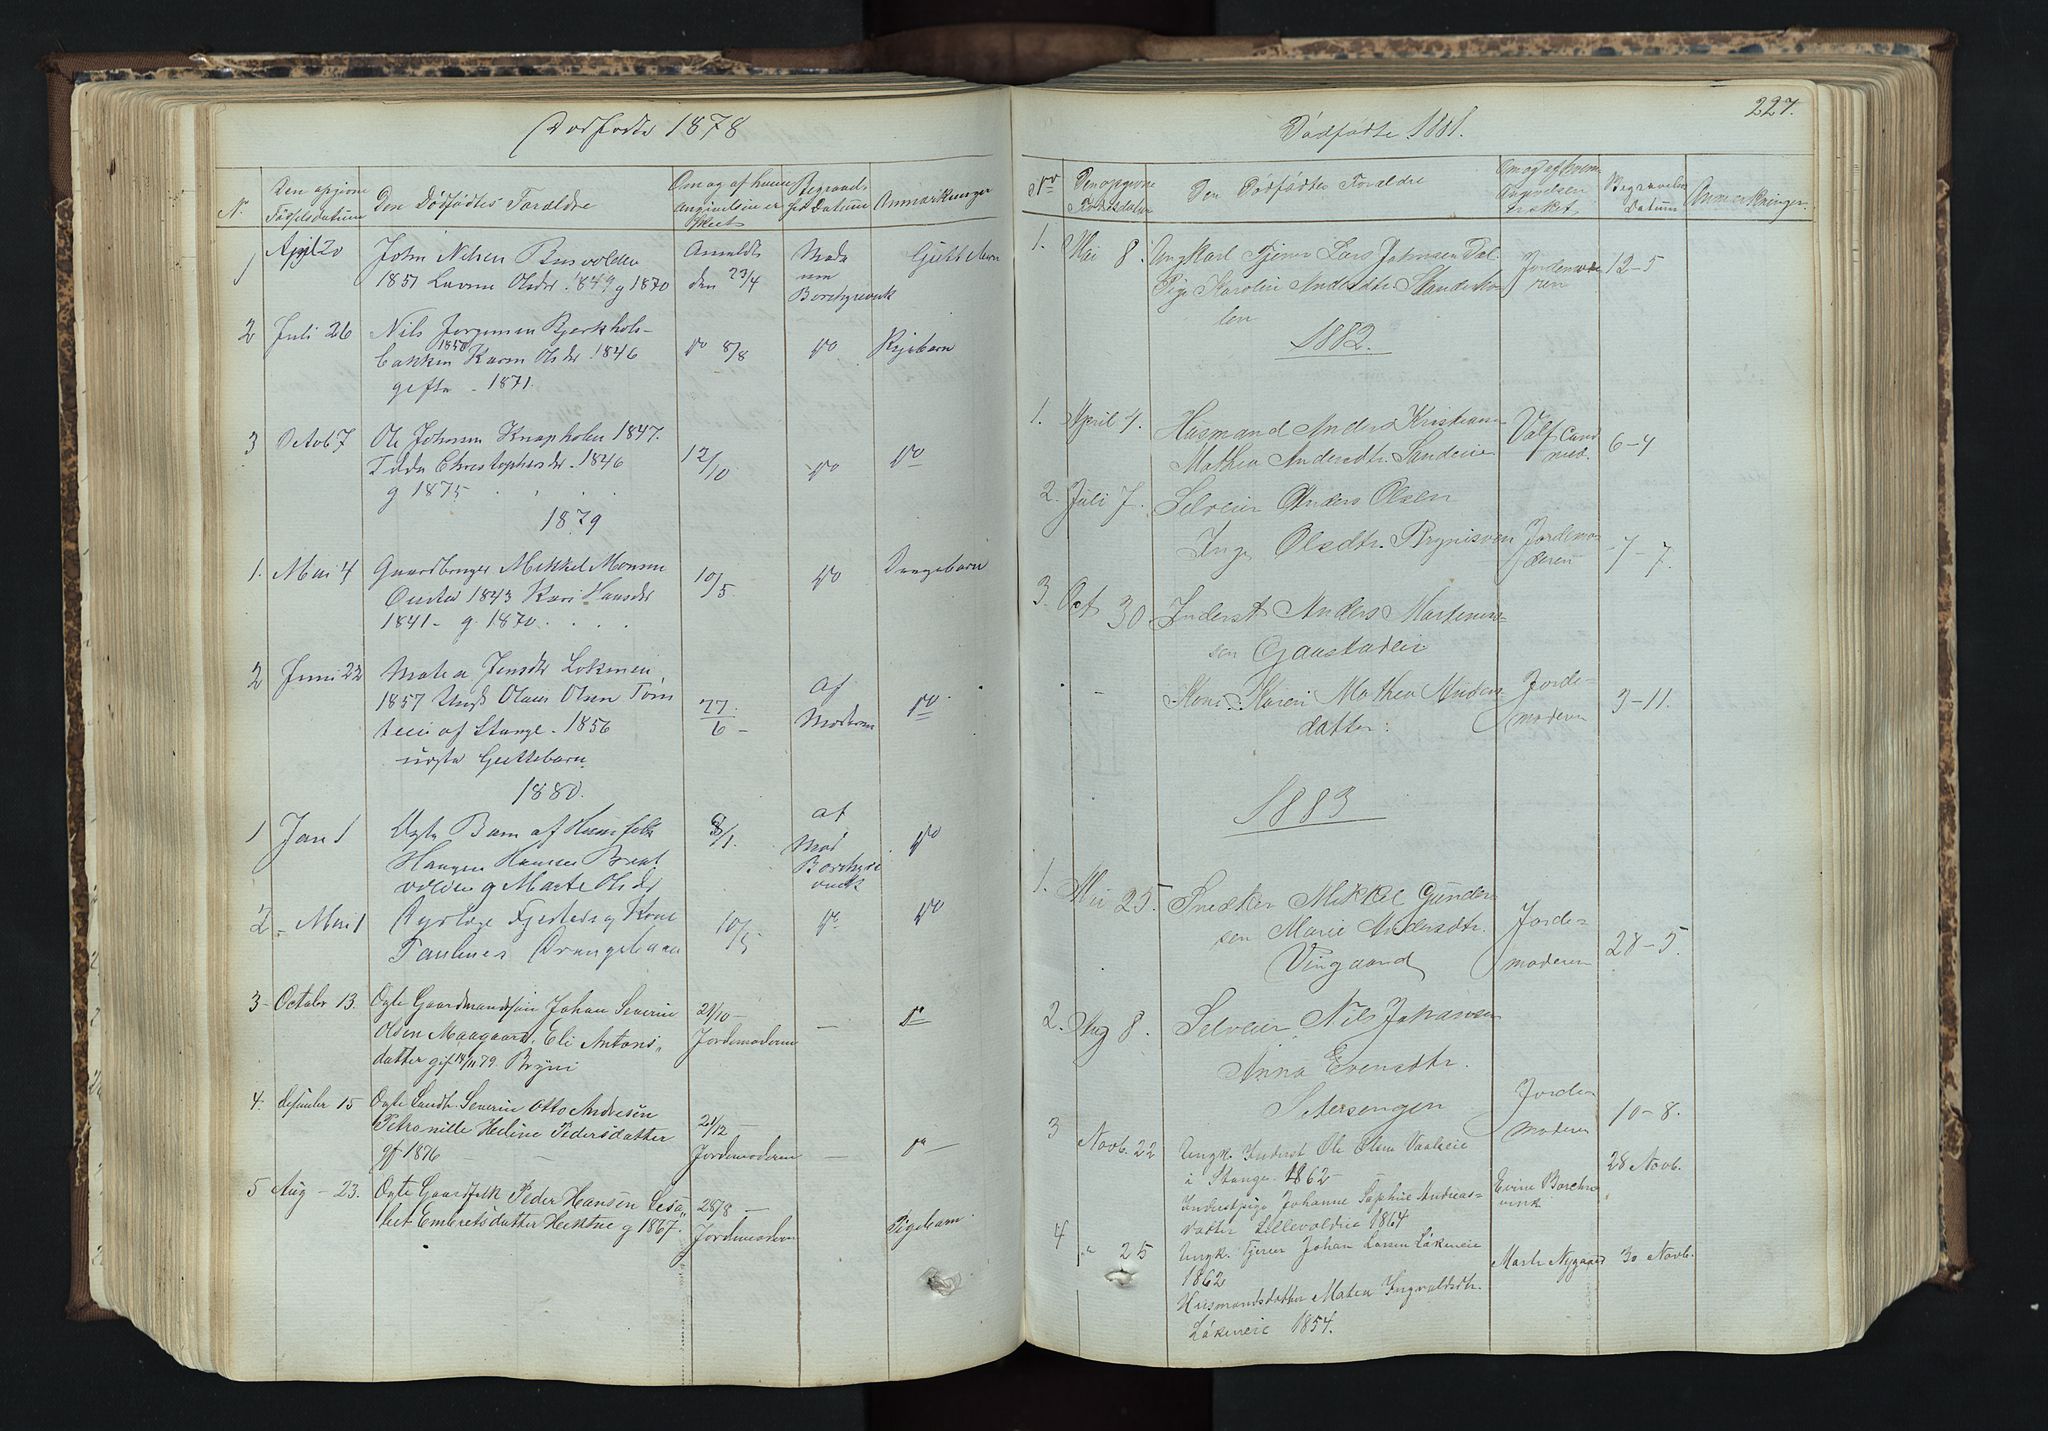 Dødfødte 1878
N.
Den opgivne Fødselsdatum
Den Dødfødtes Forældre
Om og af hvem angivelsen er skeet
Begravelsesdatum
Anmærkninger
1 April 20
John Nilsen
1851 Olsdr. 1849 g 1870
Anmeldt den 23/4
2 Juli 26
Nils Jørgensen Bjerkhol-
bakken 1850 Karen Olsdr 1846
gifte - 1871.
do 8/8
do
Pigebarn
3 Octob 7
Ole Johnsen Knapholen 1847.
Christophersdr. 1846
g 1875
12/10
do
do
1879
1. Mai 4
Gaardbruger Mikkel Monsen
1843 Kari Hansdr
1841 - g. 1870.
10/5.
do
Drengebarn
2 Juni 22
Jensdr Lokmoei
1857 Ungk Olaus Olsen
af Stange - 1856
uægte Guttebarn
27/6 -
af
Moderen
do
1880.
1 Jan 1
Ægte Barn af Huusfolk
Haagen Hansen
volden g Marte Olsdr
8/1.
af
do
2 - Mai 1
Drengebarn
10/5 -
do
do
3 - October 13.
Ægte Gaardmandssøn Johan Severin
Olsen Maagaard, Eli Antons-
datter gif 14/11 79 Bryni
21/10 -
Jordemoderen
-
do
4. desember 15
Ægte Severin Otto Andresen
Petronille Heline Pedersdatter
gf 1876
21/12 -
Jordemoderen
-
do -
5 Aug - 23.
Ægte Gaardfolk Peder Hansen
Embretsdatter Hektne g 1867.
28/8 -
Jordemodern
Pigebarn.
227.
Dødfødte 1881.
No
Den opgivne Fødselsdatum
Den Dødfødtes Forældre
Om og af hvem Angivelsen er sket
Begravelses Datum
Anmærkninger.
1. Mai 8.
Ungkarl Tjener Lars Johnsen Dal.
Pige Karoline Andersdtr.
Jordemoderen
12-5
1882.
1. April 4.
Husmand Anders Kristians-
Mathea Andersdtr. Sandeie
6-4
2. Juli 7.
Selveier Anders Olsen
Inge Olsdtr. Brynisven
Jordemo-
deren
7-7.
3. Oct 30
Inderst Anders Martinus-
sen Gaustadeie
Kone Karen Mathea Anders
datter.
Jorde-
moderen
3-11.
1883
1. Mai 25.
Snedker Mikkel Gunder-
sen Marie Andersdtr.
Vingaard
Jorde-
moderen
28-5.
2. Aug 8.
Selveier Nils Johansen
Anna Evensdtr.
Setersengen
Jorde-
moderen
10-8.
3 Novb. 22
Ungk. Inderst Ole Olsen
i Stange. 1862
Inderstpige Johanne Sophie Andreas-
datter Lillevoldeie 1864
28 Novb.
4 " 25
Ungk. Tjener Johan Larsen Løkeneie
1862
Husmandsdatter Matea Ingvaldsdtr.
Løkeneie 1854.
Marte Nygaard
30 Novb.